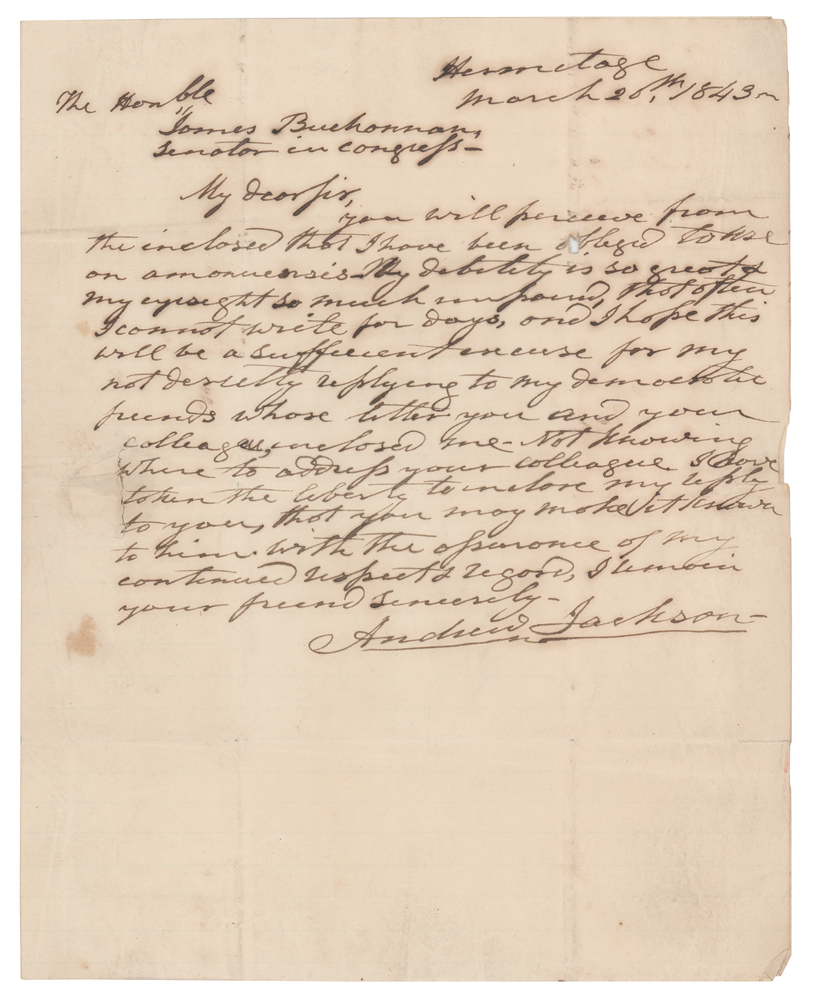 Hermitage
March 26th, 1843—
The Honble
James Buchannan,
Senator in congress—
My dear sir,
you will perceive from
the inclosed that I have been obleged to use
an amonuensis—My debility is so great &
my eyesight so much impaired, that often
I cannot write for days, and I hope this
will be a sufficient excuse for my
not directly replying to my democratic
friends whose letter you and your
colleague, inclosed me—Not knowing
where to address your colleague I have
taken the liberty to inclose my reply
to you, that you may make it known
to him. with the assurance of my
continued respect & regard, I remain
your friend sincerely—
Andrew Jackson—